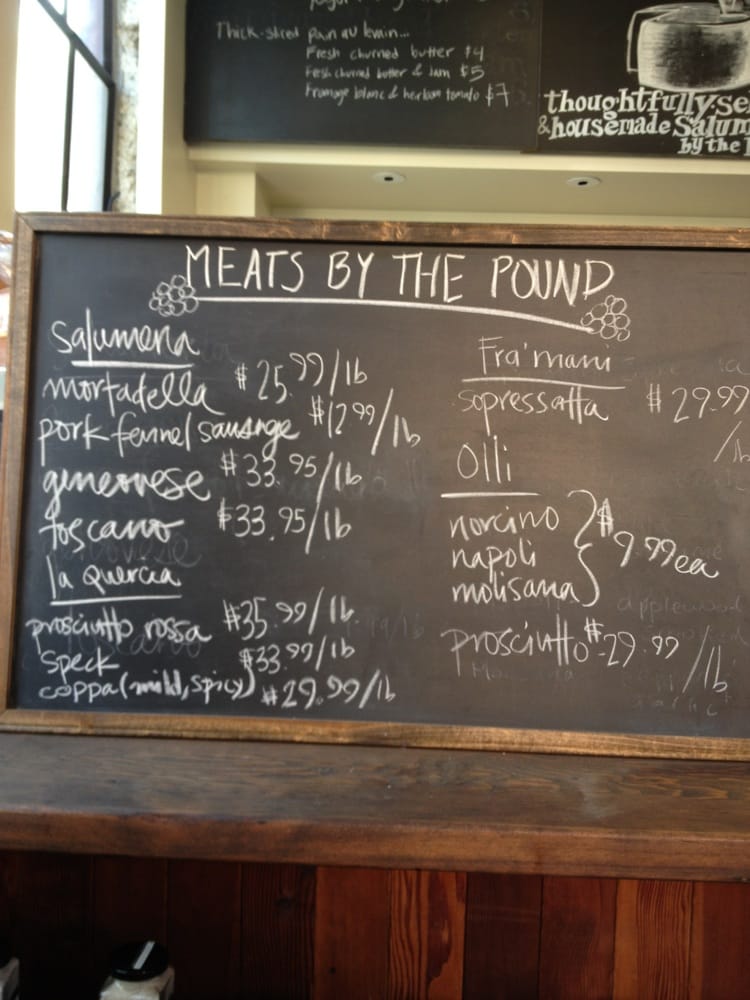 Thick-sliced pain au levain...
Fresh churned butter $4
Fresh churned butter & jam $5
Fromage blanc & heirloom tomato $7
thoughtfully-se
& housemade Salum
by the
MEATS BY THE POUND
Salumeria
mortadella $25.99/lb
pork fennel sausage $12.99/lb
genovese $33.95/lb
toscano $33.95/lb
la Quercia
prosciutto rossa $35.99/lb
Speck $33.99/lb
coppa (mild, spicy) $29.99/lb
Fra'mani
sopressatta $29.99/lb
Olli
norcino
napoli
molisana
$9.99 ea
prosciutto $29.99/lb